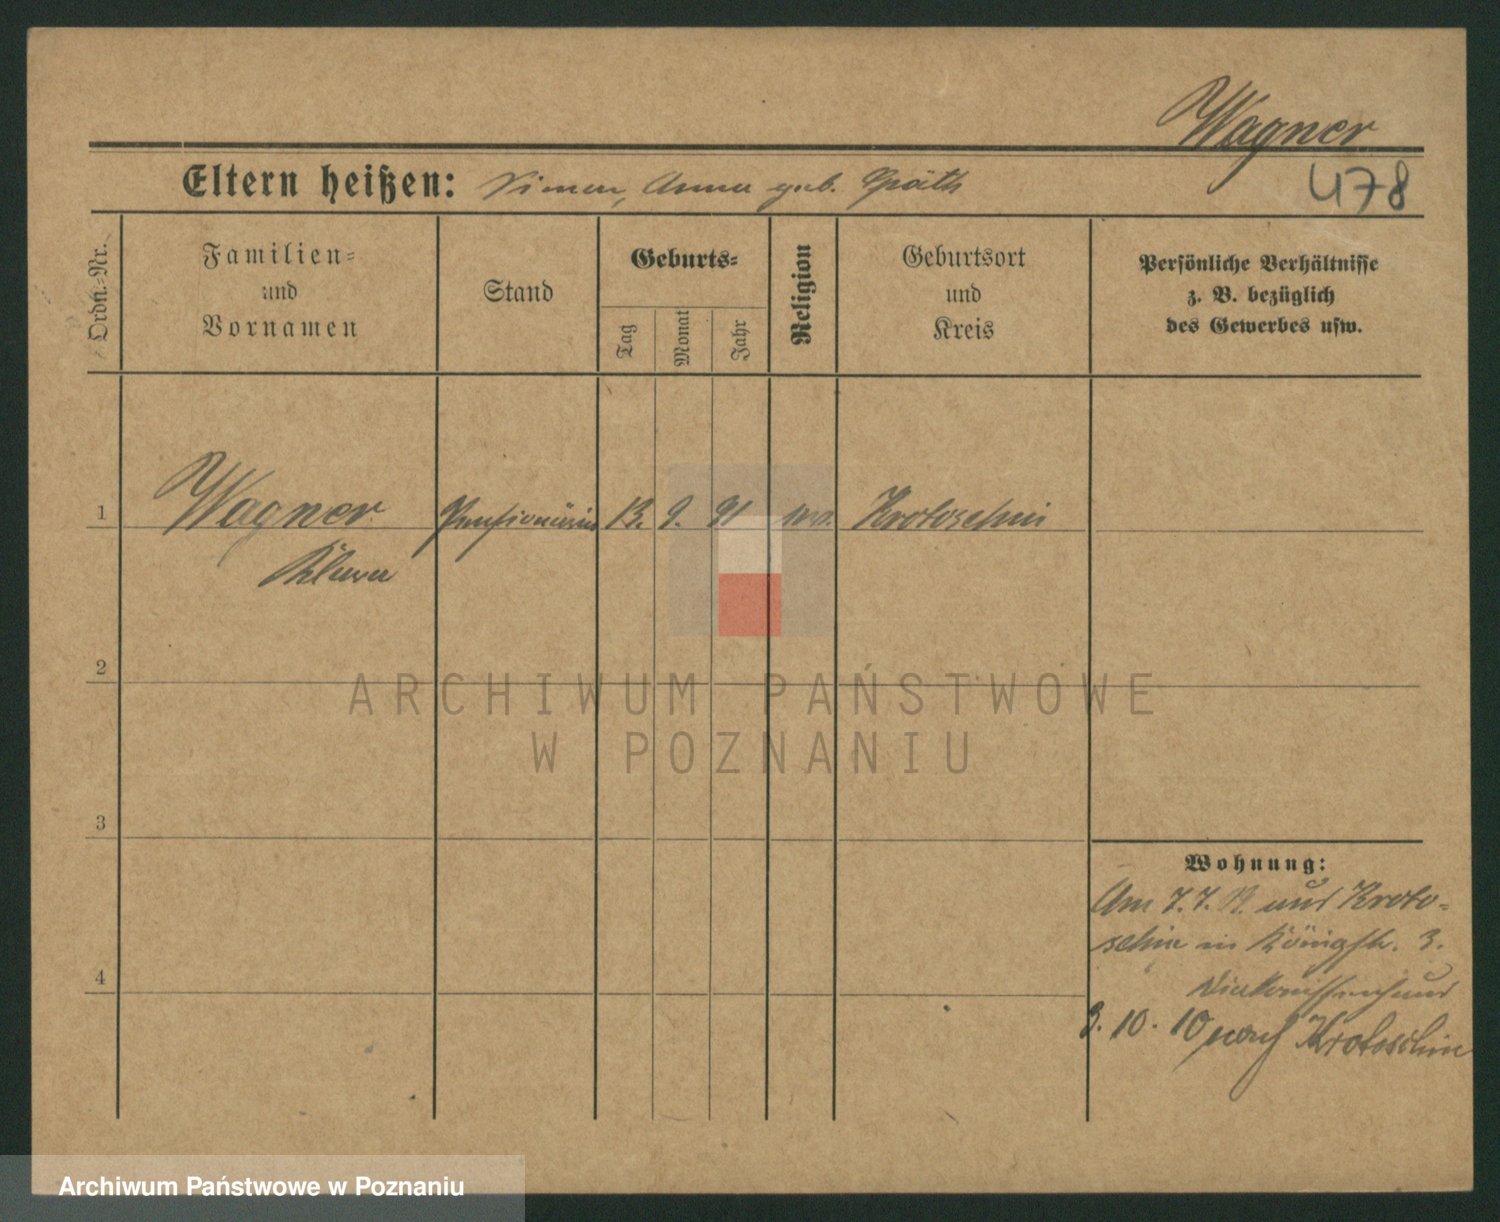 Wagner
Eltern heißen: Simon, Anna geb. Späth
478
Ordn.-Nr.
Familien-
und
Vornamen
Stand
Geburts-
Tag
Monat
Jahr
Religion
Geburtsort
und
Kreis
Persönliche Verhältnisse
z. B. bezüglich
des Gewerbes usw.
1
Wagner Pensionärin 13. 9. 91 mos. Krotoschin
Klara
2
ARCHIWUM PAŃSTWOWE
W POZNANIU
3
Wohnung:
Am 7. 7. aus Kroto-
schin in Königstr. 3.
Diakonissenhaus
4
3. 10. 10 nach Krotoschin
Archiwum Państwowe w Poznaniu